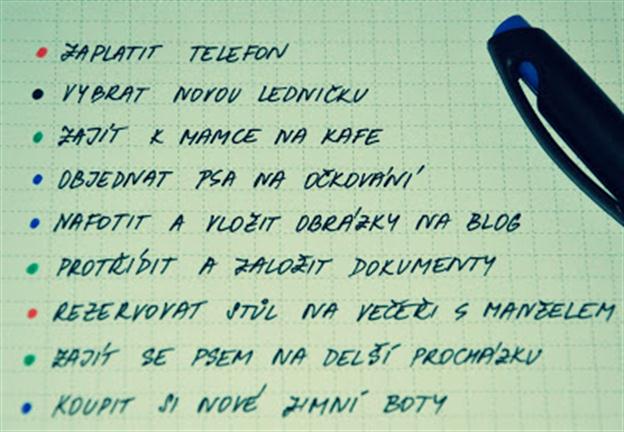 ZAPLATIT TELEFON
VYBRAT NOVOU LEDNIČKU
ZAJÍT K MAMCE NA KAFE
OBJEDNAT PSA NA OČKOVÁNÍ
NAFOTIT A VLOŽIT OBRÁZKY NA BLOG
PROTŘÍDIT A ZALOŽIT DOKUMENTY
REZERVOVAT STŮL NA VEČEŘI S MANŽELEM
ZAJÍT SE PSEM NA DELŠÍ PROCHÁZKU
KOUPIT SI NOVÉ ZIMNÍ BOTY